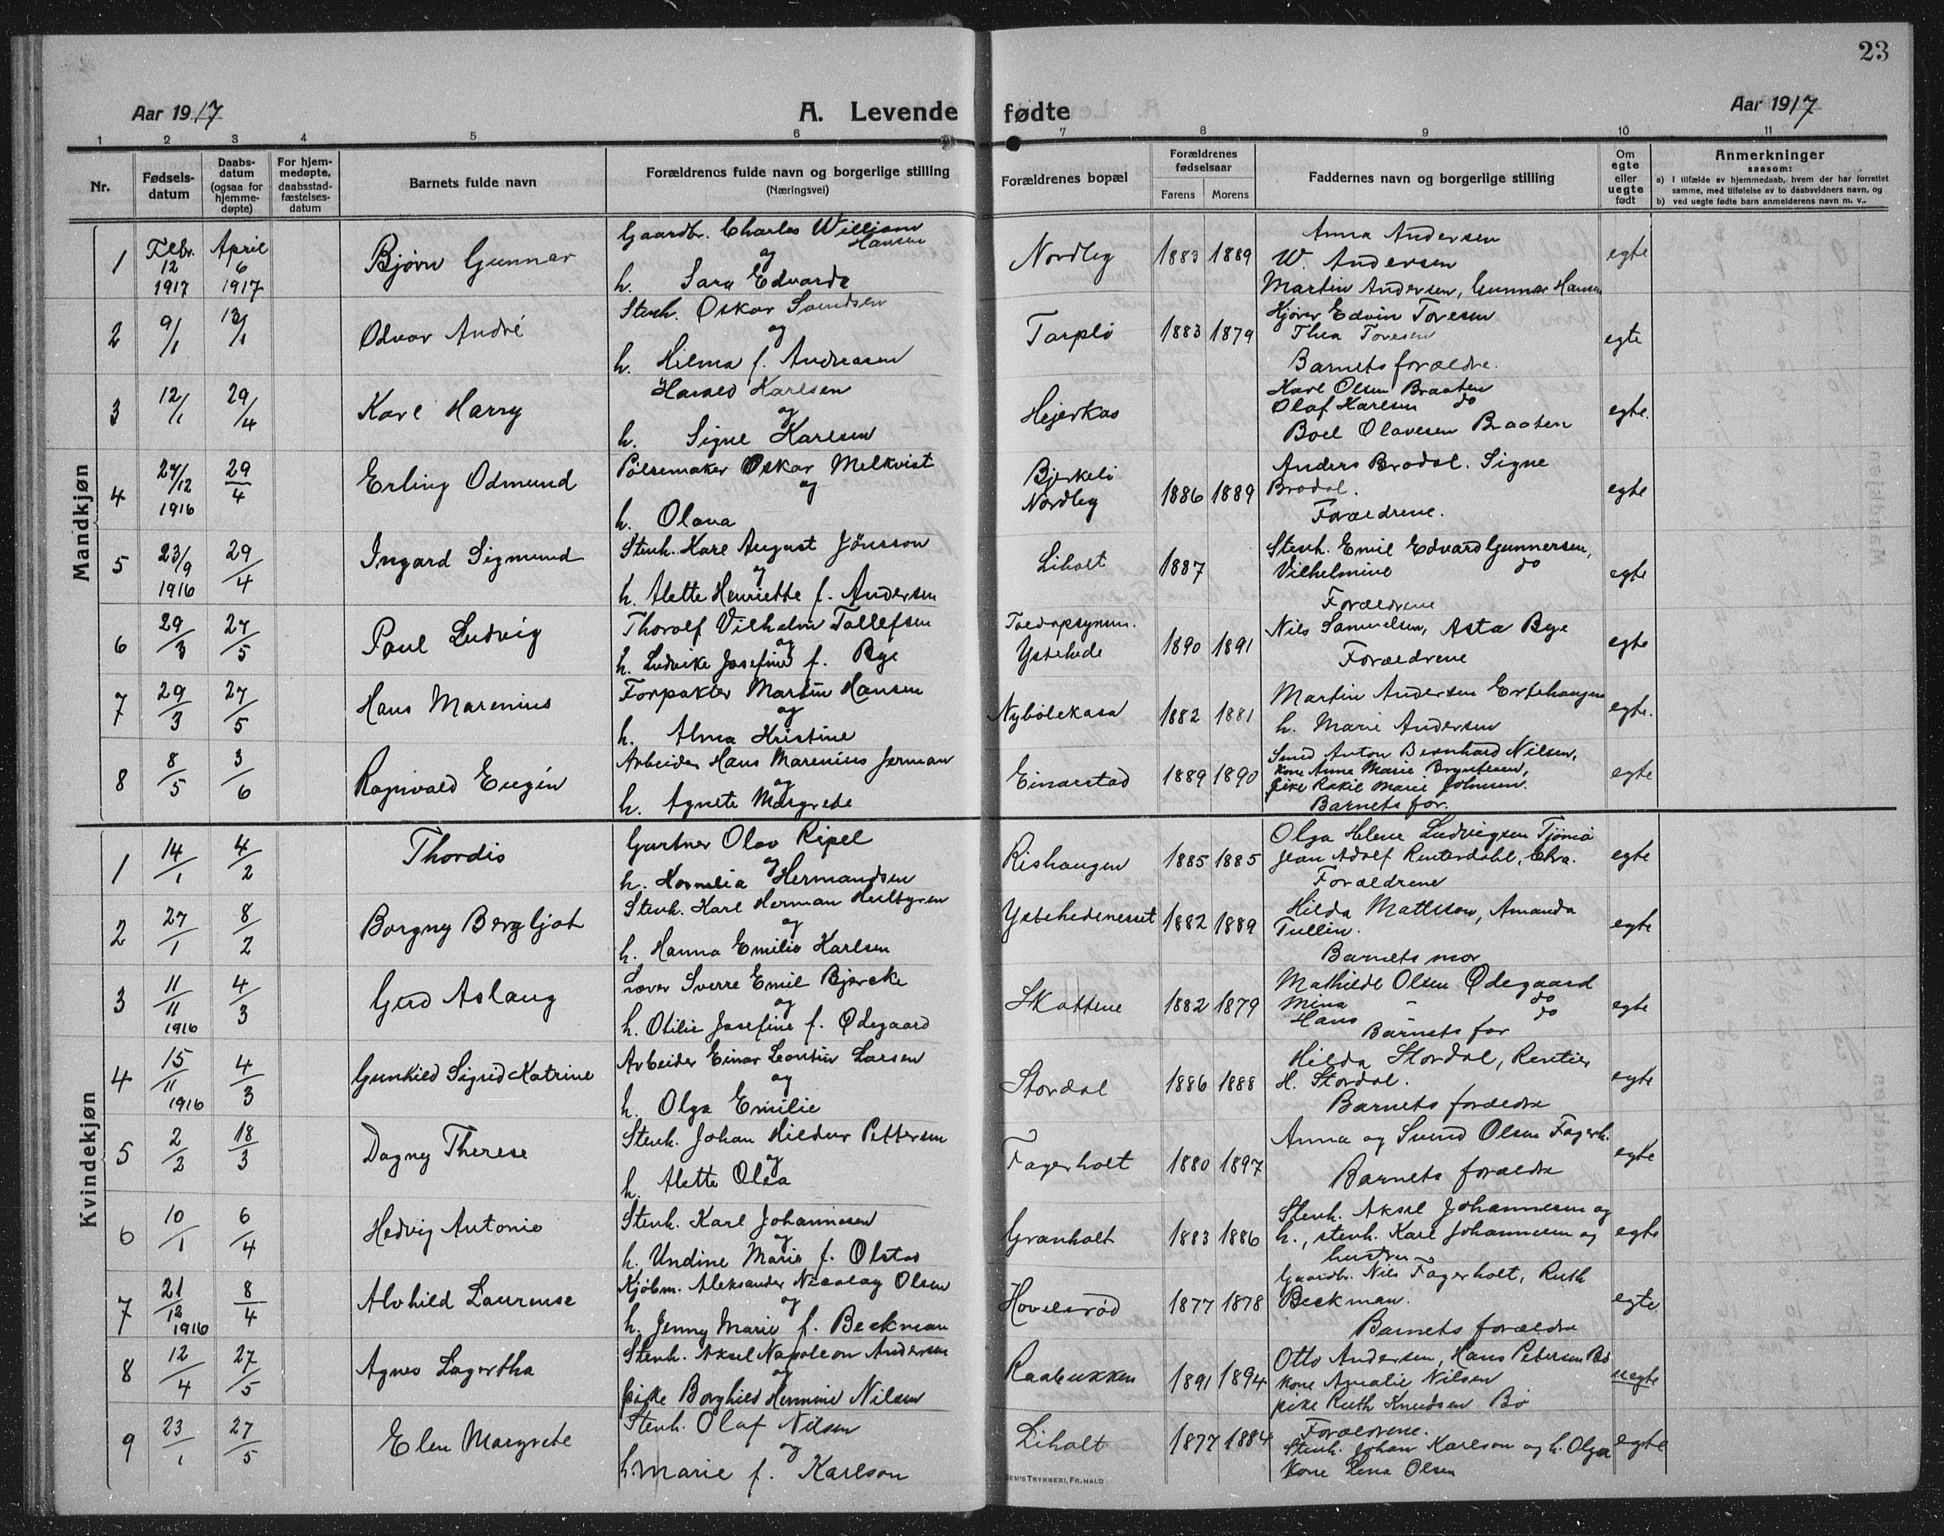 23
Aar 1917 A. Levende fødte Aar 1917
1 2 3 4 5 6 7 8 9 10 11
Nr. Fødsels-datum Daabs-datum (ogsaa for hjemme-døpte) For hjem-medøpte, daabsstad-fæstelses-datum Barnets fulde navn Forældrenes fulde navn og borgerlige stilling (Næringsvei) Forældrenes bopæl Forældrenes fødselsaar Farens Morens Faddernes navn og borgerlige stilling Om egte eller uegte født Anmerkninger saasom:
a) I tilfælde av hjemmedaab, hvem der har forrettet samme, med tilføielse av to daabsvidners navn, og
b) ved uegte fødte barn anmelderens navn m. v..
Mandkjøn
1 Febr. 12 1917 April 6 1917 Bjørn Gunnar Gaardbr. Charles William Hansen og h. Sara Edvarda Nordleg 1883 1889 Anna Andersen W. Andersen Martin Andersen, Gunnar Hansen egte
2 9/1 13/1 Odvar André Stenh. Oskar Svendsen og h. Hilma f. Andreasen Torplø 1883 1879 Hjører Edvin Toresen Thea Toresen Barnets forældre. egte
3 12/1 29/4 Karl Harry Harald Karlsen og h. Signe Karlsen Hejerkas Karl Olsen Braaten Olaf Karlsen do Boel Olavesen Braaten egte.
4 27/12 1916 29/4 Erling Odmund Pølsemaker Oskar Melkvist og h. Olava Bjerkelø Nordleg 1886 1889 Anders Brodal. Signe Brodal. Forældrene. egte
5 23/9 1916 29/4 Ingard Sigmund Stenh. Karl August Jönsson og h. Alette Henriette f. Andersen Liholt 1887 Stenh. Emil Edvard Gunnersen, Vilhelmine do Forældrene egte
6 29/3 27/5 Paul Ludvig Thorolf Vilhelm Tollefsen og h. Ludvike Josefine f. Bye Toldopsynsm. Ystehede 1890 1891 Nils Samuelsen, Asta Bye Forældrene egte
7 29/3 27/5 Hans Marenius Forpakter Martin Hansen og h. Alma Kristine Nybølekasa 1882 1881 Martin Andersen Ertehaugen h. Marie Andersen egte.
8 8/5 3/6 Ragnvald Eugén Arbeider Hans Marenius Jerman og h. Agnete Margrete Einarstad 1889 1890 Smed Anton Bernhard Nilsen, kone Anne Marie Bryntesen, pike Rakil Marie Johnsen. Barnets for. egte
Kvindekjøn
1 14/1 4/2 Thordis Gartner Olav Ripel og h. Kornelia Hermandsen Rishaugen 1885 1885 Olga Helene Ludvigsen Tjømø Jean Adolf Renterdahl, Chra. Forældrene egte
2 27/1 8/2 Borgny Bergljot Stenh. Karl Herman Hultgren og h. Hanna Emilie Karlsen Ystehedenesset 1882 1889 Hilda Mattsson, Amanda Tullin. Barnets mor egte
3 11/11 1916 4/3 Gerd Aslaug Sverre Emil Bjercke og h. Otilie Josefine f. Ødegaard Skottene 1882 1879 Mathilde Olsen Ødegaard Mina - do Hans do Barnets far egte
4 15/11 1916 4/3 Gunhild Sigrid Katrine Arbeider Einar Leontin Larsen og h. Olga Emilie Stordal 1886 1888 Hilda Stordal, Rentier H. Stordal. Barnets forældre egte
5 2/2 18/3 Dagny Therese Stenh. Johan Hildur Pettersen og h. Alette Olea Fagerholt 1880 1897 Anna og Svend Olsen Fagerh. Barnets forældre egte
6 10/1 6/4 Hedvig Antonie Stenh. Karl Johannesen og h. Undine Marie f. Olstad Granholt 1883 1886 Stenh. Aksel Johannesen og h., stenh. Karl Johannesen og hustru egte
7 21/12 1916 8/4 Alvhild Laurense Kjøbm. Aleksander Nicolay Olsen og h. Jenny Marie f. Beckman Hovelsrød 1877 1878 Gaardbr. Nils Fagerholt, Ruth Beckman. Barnets forældre egte.
8 12/4 27/5 Agnes Lagertha Stenh. Aksel Napoleon Andersen og pike Borghild Hermine Nilsen Raabukken 1891 1894 Otto Andersen, Hans Petersen Bø kone Amalie Nilsen pike Ruth Knudsen Bø uegte
9 23/1 27/5 Elen Margrete Stenh. Olaf Nilsen og h. Marie f. Karlson Liholt 1877 1884 Forældrene. Stenh. Johan Karlson og h. Olga kone Lena Olsen egte
TRYKKERI, FR.HALD